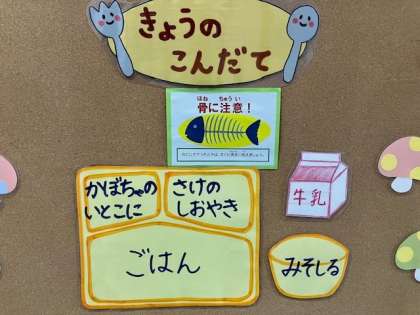 きょうの
こんだて
ほね ちゅうい
骨に注意！
かぼちゃの
いとこに
さけの
しおやき
牛乳
ごはん
みそしる